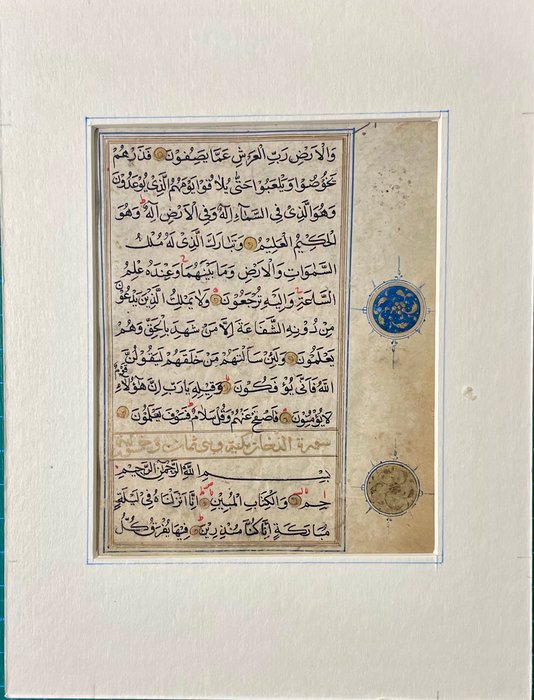 وَالْاَرْضِ رَبِّ الْعَرْشِ عَمَّا يَصِفُونَ فَذَرْهُمْ
يَخُوضُوا وَيَلْعَبُوا حَتّٰى يُلَاقُوا يَوْمَهُمُ الَّذِى يُوعَدُونَ
وَهُوَ الَّذِى فِى السَّمَاءِ اِلٰهٌ وَفِى الْاَرْضِ اِلٰهٌ وَهُوَ
الْحَكِيمُ الْعَلِيمُ وَتَبَارَكَ الَّذِى لَهُ مُلْكُ
السَّمٰوَاتِ وَالْاَرْضِ وَمَا بَيْنَهُمَا وَعِنْدَهُ عِلْمُ
السَّاعَةِ وَاِلَيْهِ تُرْجَعُونَ وَلَا يَمْلِكُ الَّذِينَ يَدْعُونَ
مِنْ دُونِهِ الشَّفَاعَةَ اِلَّا مَنْ شَهِدَ بِالْحَقِّ وَهُمْ
يَعْلَمُونَ وَلَئِنْ سَاَلْتَهُمْ مَنْ خَلَقَهُمْ لَيَقُولُنَّ
اللّٰهُ فَاَنّٰى يُؤْفَكُونَ وَقِيلِهِ يَارَبِّ اِنَّ هٰؤُلَاءِ قَوْمٌ
لَا يُؤْمِنُونَ فَاصْفَحْ عَنْهُمْ وَقُلْ سَلَامٌ فَسَوْفَ يَعْلَمُونَ
سورة الدخان مكية وهى ثمان وخمسون اية
بِسْمِ اللّٰهِ الرَّحْمٰنِ الرَّحِيمِ
حٰم وَالْكِتَابِ الْمُبِينِ اِنَّا اَنْزَلْنَاهُ فِى لَيْلَةٍ
مُبَارَكَةٍ اِنَّا كُنَّا مُنْذِرِينَ فِيهَا يُفْرَقُ كُلُّ